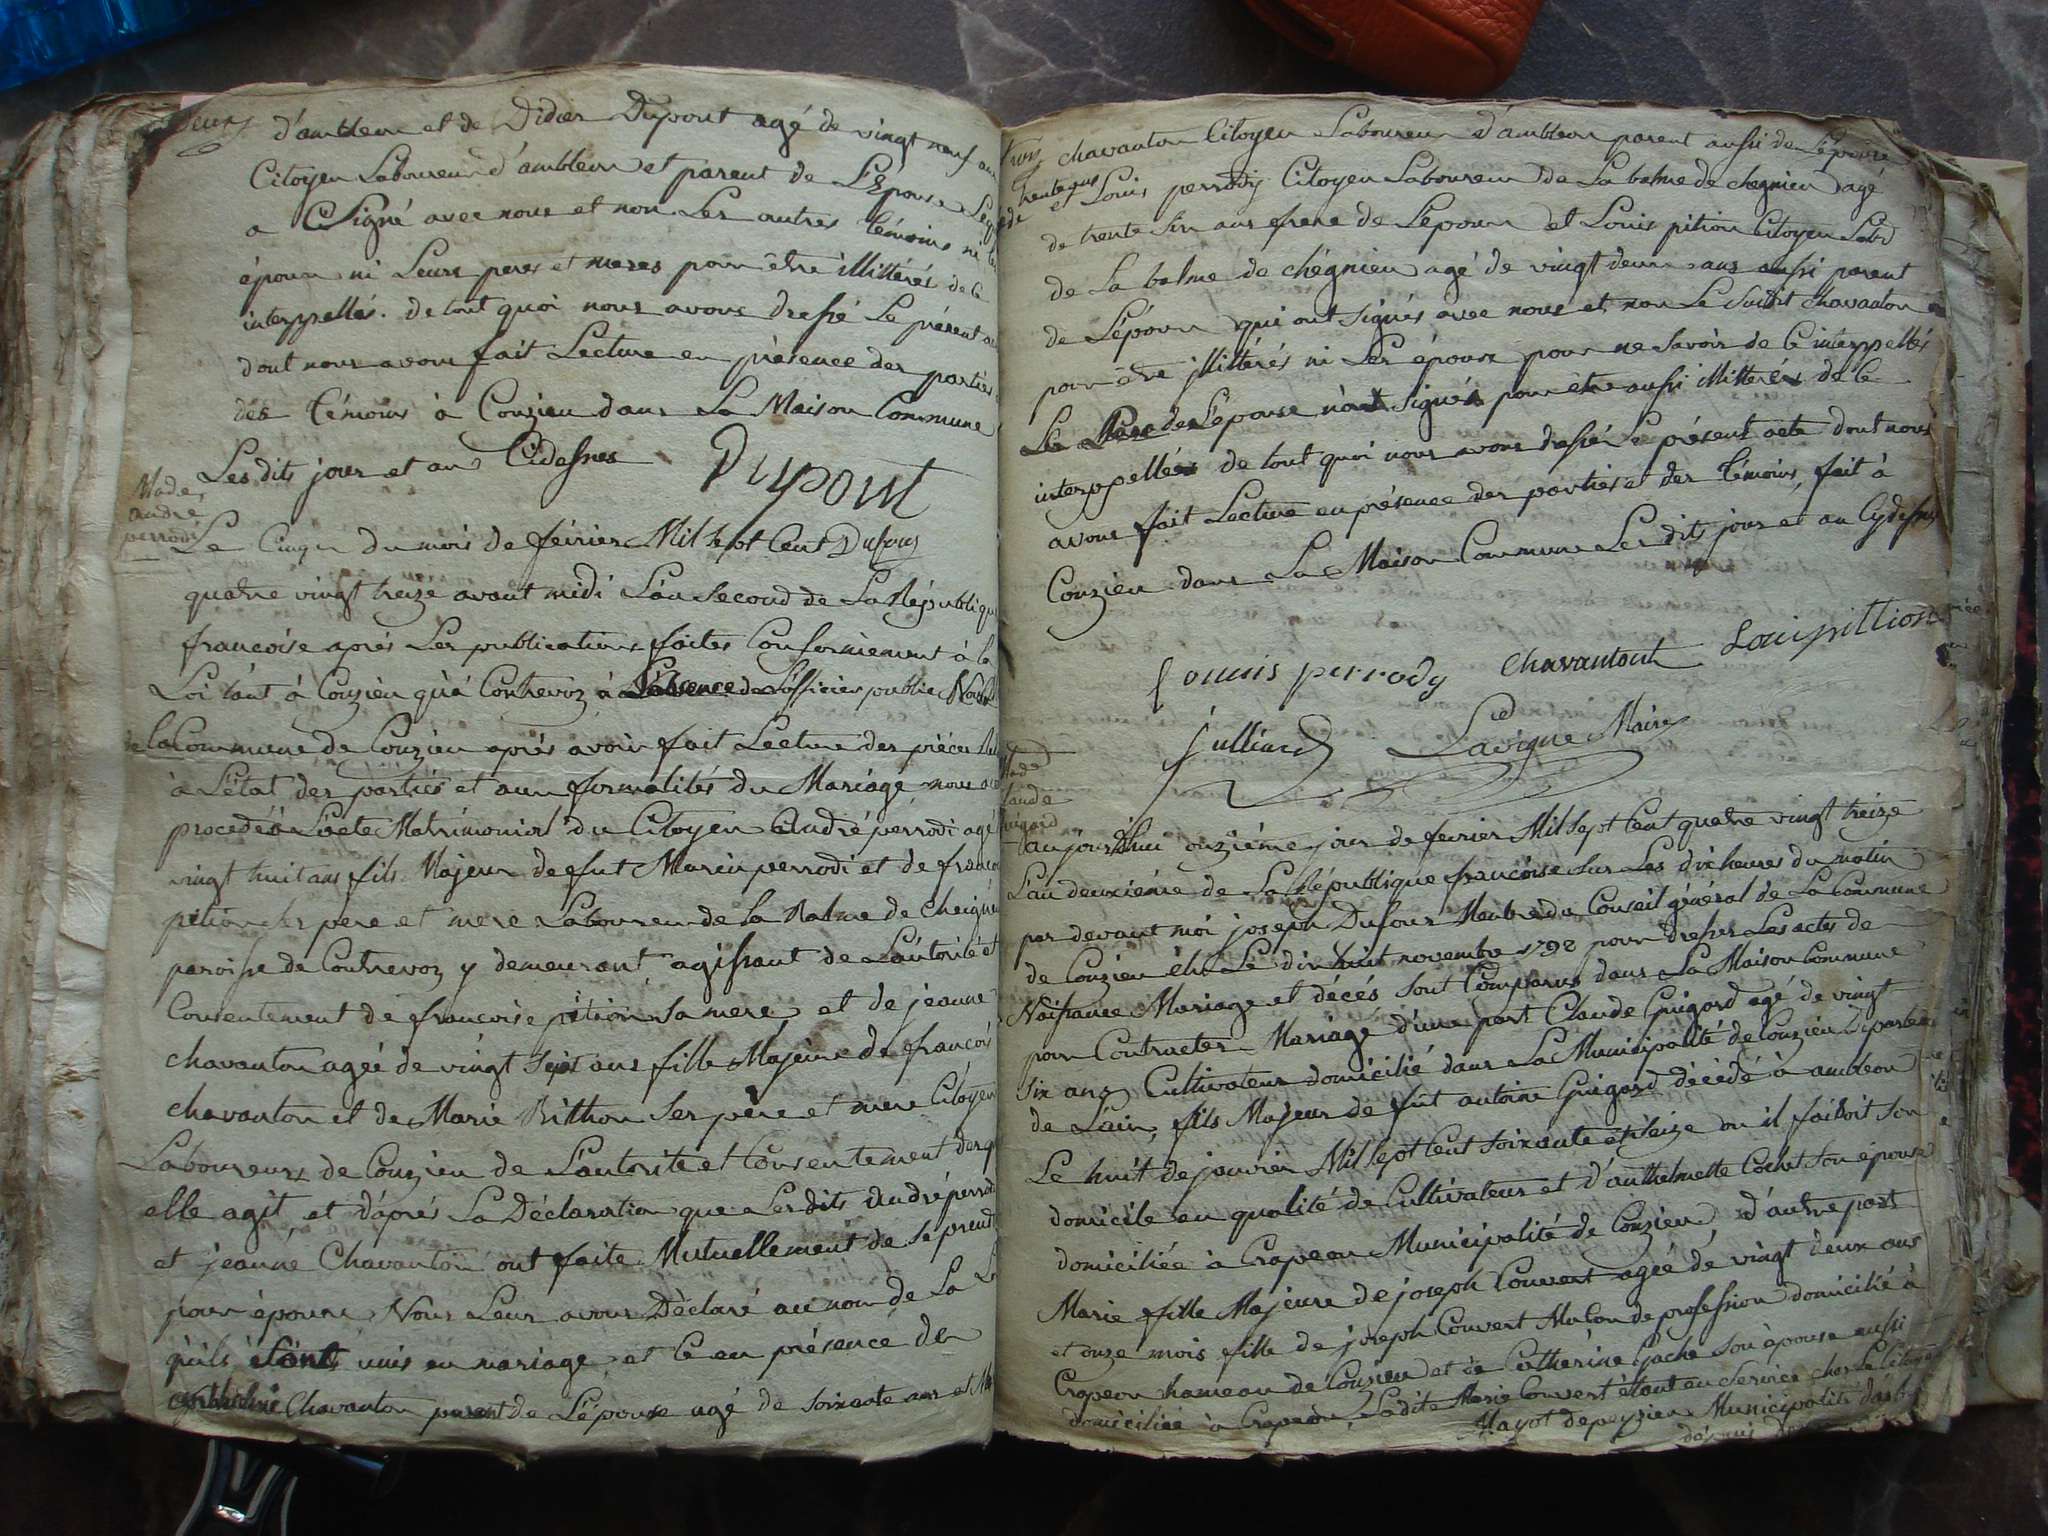 d'ambleon et de Didier Dupont agé de vingt neuf ans
Citoyen Laboureur d'ambleon et parent de L'Epouse
a Signé avec nous et non Les autres témoins ni
époux ni Leurs peres et meres pour être illittérés de ce
interppellés. de tout quoi nous avons dressé Le présent
dont nous avons fait Lecture en présence des parties
des témoins à Conzieu dans La Maison Commune
Les dits jour et an Cidessus
Dupont
Made
andré
perrodi
Le Cinq du mois de févrierMil Sept Cent Dufour
quatre vingt treize avant midi L'an Second de La Républiqu
francoise aprés Les publications faites Conformement à la
Loi tant à Conzieu qu'à Contrevoz à L'absence de L'officier public
de la Commune de Conzieu aprés avoir fait Lecture des piéces
à L'état des parties et aux formalités du Mariage nous
procedé à L'acte Matrimonial du Citoyen André perrodi agé
vingt huit ans fils Majeur de fut Marin perrodi et de
pition Ses pere et mere Laboureur de la Balme de
paroisse de Contrevoz y demeurant agissant de L'autorité et
Consentement de francoise pition Sa mere et de jeanne
chavanton agée de vingt Sept ans fille Majeure de francois
chavanton et de Marie Bithon Ses père et mere Citoyen
Laboureurs de Conzieu de L'autorité et Consentement
elle agit et d'aprés La Déclaration que Les dits André
et jeanne Chavanton ont faite Mutuellement de Se
pour époux Nous Leur avons Déclaré au nom de La
qu'ils étant unis en mariage et Ce en présence de
Chavanton parent de L'épouse agé de Soixante ans et
chavanton Citoyen Laboureur d'ambleon parent aussi de L'épouse
et Louis perrody Citoyen Laboureur de La balme de chegnieu agé
de trente Six ans frere de L'époux et Louis pition Citoyen Labr
de La balme de chégnieu agé de vingt deux ans aussi parent
de L'époux qui ont Signés avec nous et non Le Sudit chavanton
pour être illittérés ni Les époux pour ne Savoir de Ce interppellés
Le Pere de L'épouse n'ont Signés pour être aussi illitterés de Ce
interppellés de tout quoi nous avons dressé Le présent acte dont nous
avons fait Lecture en présence des parties et des témoins, fait à
Conzieu dans La Maison Commune Les dits jour et an Cydessus
Louis perrody chavantont Loui pittion
julliard Lavigne Maire
Made
Claude
Guigard
aujourdhui onziéme jour de fevrier Mil Sept Cent quatre vingt treize
L'an deuxiéme de La République francoise Sur Les dix heures du matin
par devant moi joseph Dufour Membre du Conseil général de La Commune
de Conzieu élu Le dix huit novembre 1792 pour dresser Les actes de
Naissance Mariage et décés Sont Comparus dans La Maison Commune
pour Contracter Mariage d'une part Claude Guigard agé de vingt
Six ans Cultivateur domicilié dans La Municipalité de Conzieu Départem
de L'ain, fils Majeur de fut antoine Guigard décédé à ambleon
Le huit de janvier Mil Sept Cent Soixante et Seize ou il faisoit Son
domicile en qualité de Cultivateur et d'anthelmette Cochet Son épouse
domiciliée à Crapeou Municipalité de Conzieu d'autre part
Marie fille Majeure de joseph Couvert agée de vingt deux ans
et onze mois fille de joseph Couvert Maçon de profession domicilié à
Crapeou hameau de Conzieu et de Catherine Gache Son épouse aussi
domiciliée à Crapeou, Ladite Marie Couvert étant en Service chez Le Citoyen
Mayot depeyzieu Municipalité